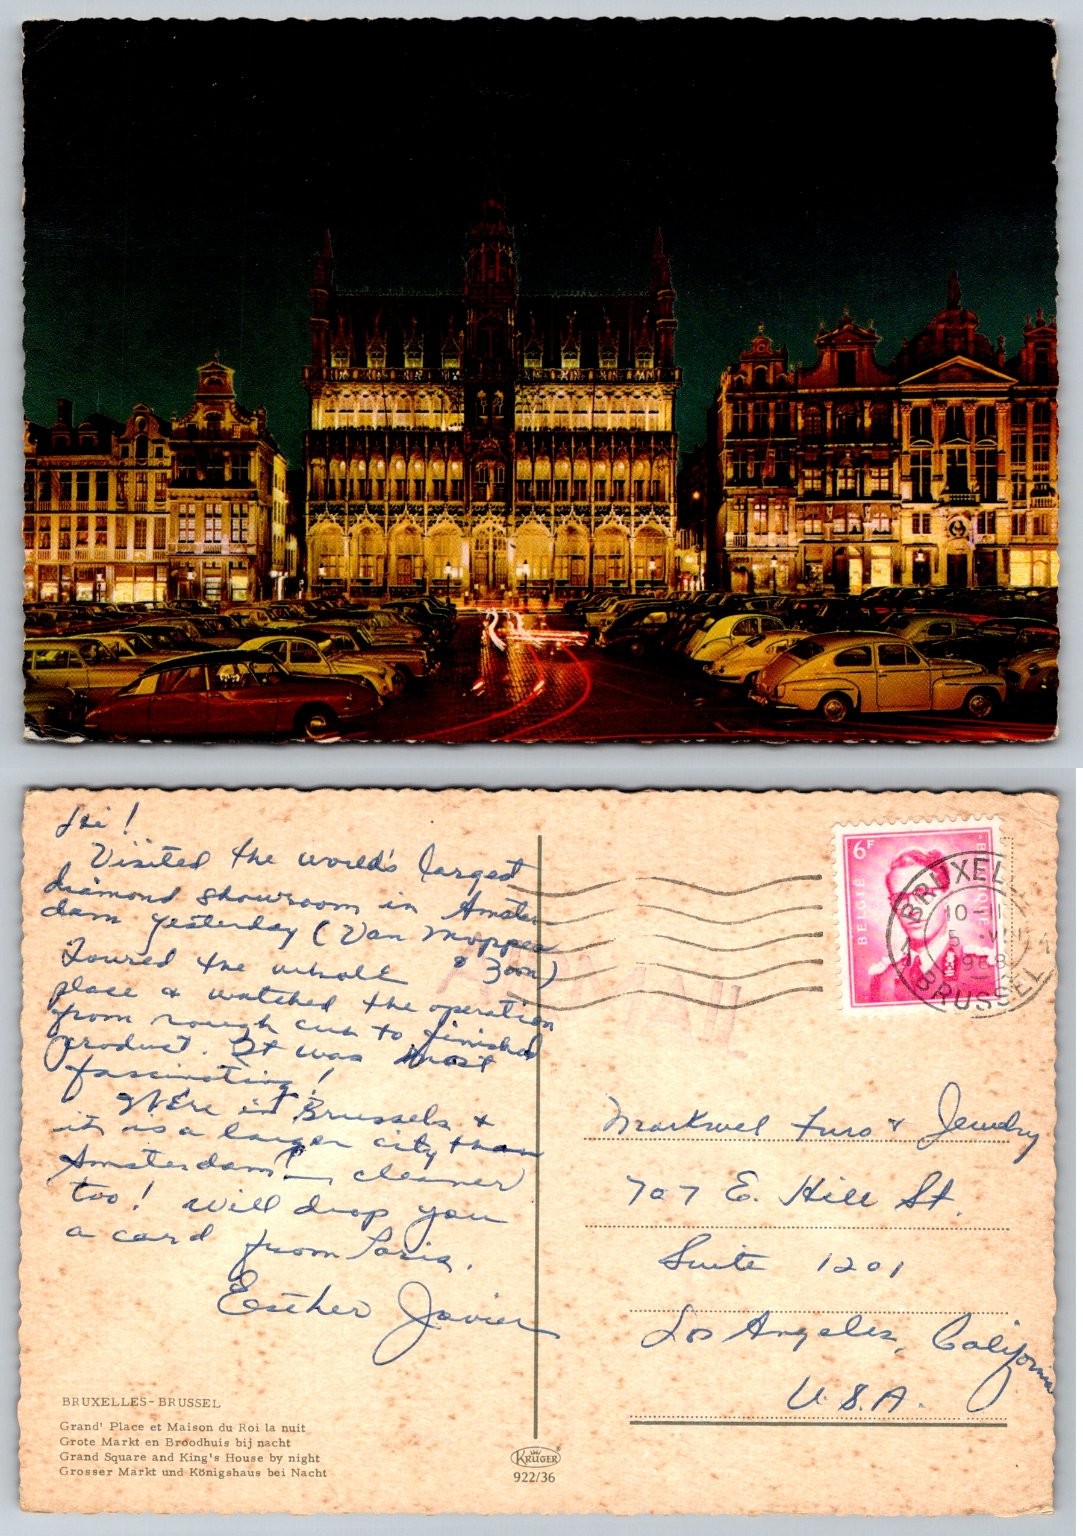 Hi!
Visited the world's largest
diamond showroom in Amster-
dam yesterday (Van Moppes
& Zoon)
Toured the whole
place & watched the operation
from rough cut to finished
product. It was most
fascinating!
We're in Brussels &
it is a larger city than
Amsterdam! cleaner
too! Will drop you
a card from Paris.
Esther Javier
BRUXELLES-BRUSSEL
Grand' Place et Maison du Roi la nuit
Grote Markt en Broodhuis bij nacht
Grand Square and King's House by night
Grosser Markt und Königshaus bei Nacht
KRÜGER
922/36
6F
BELGIË
BRUXEL
10-
5
1968
BRUSSEL
Markwel Furs & Jewelry
707 E. Hill St.
Suite 1201
Los Angeles, California
U.S.A.